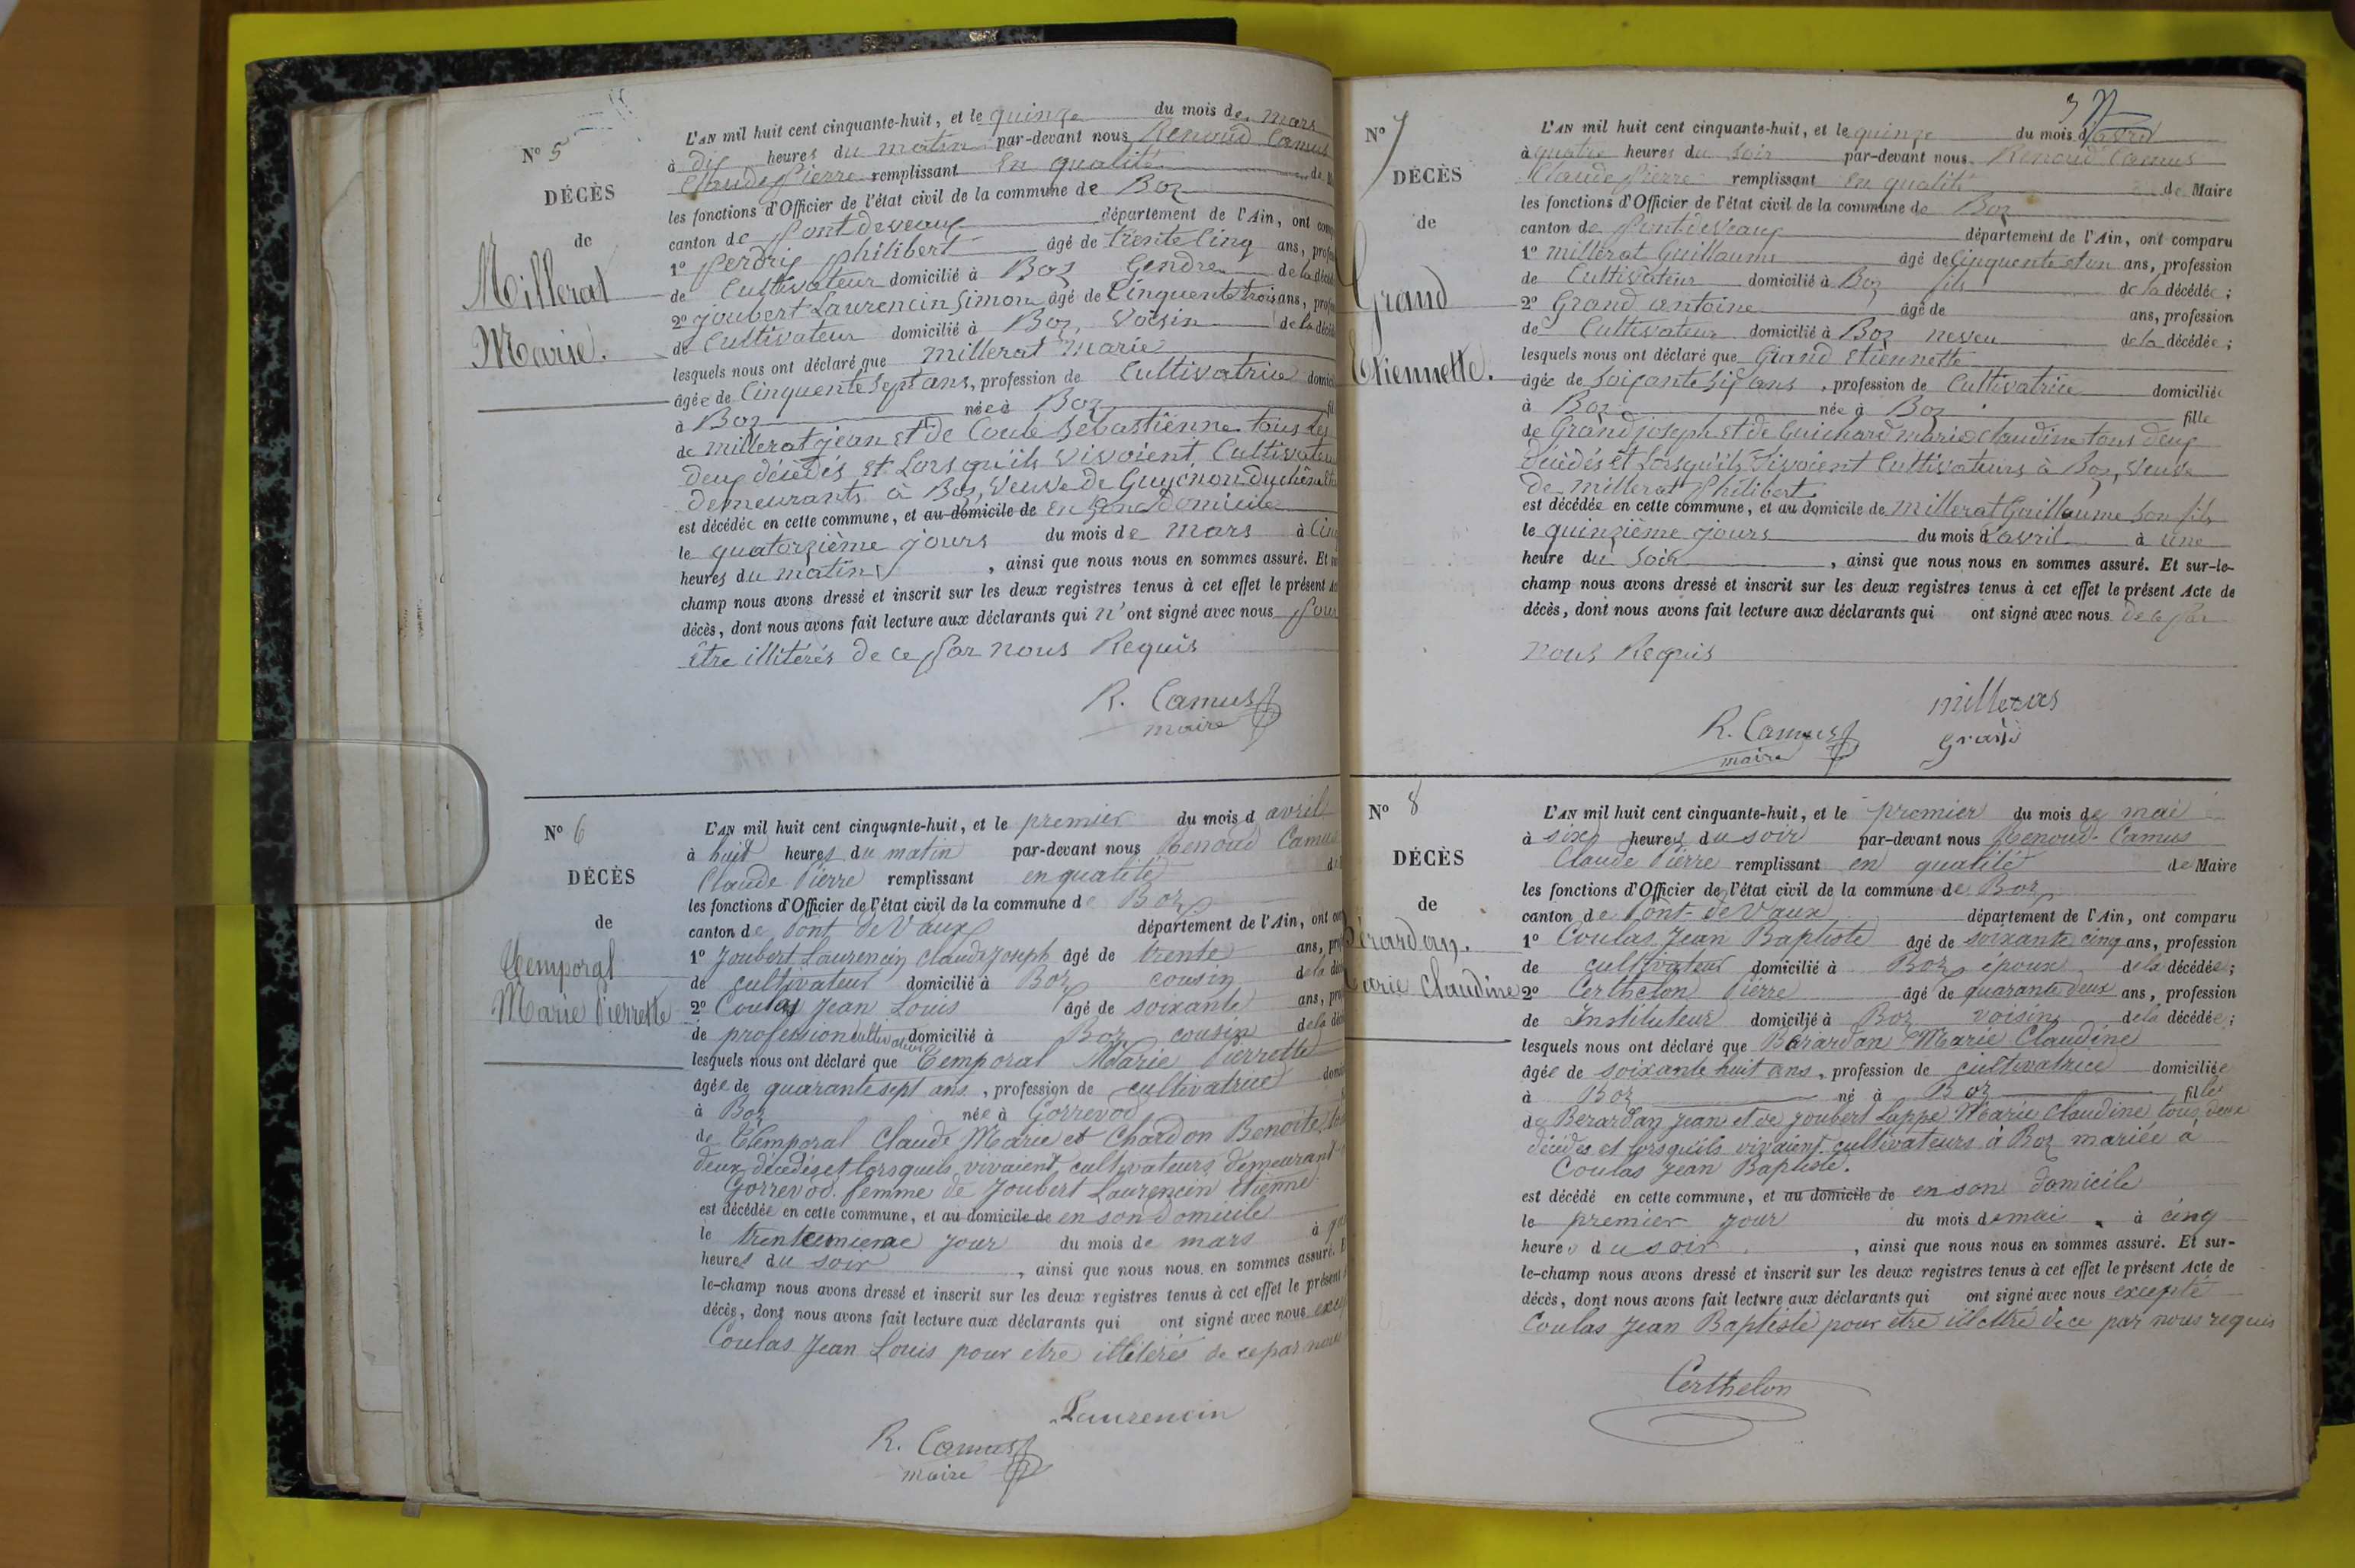 N° 5
DÉCÈS
de
Millerat
Marie.
L'AN mil huit cent cinquante-huit, et le quinze du mois de mars
à dix heures du matin par-devant nous Renoud Camus
Claude Pierre remplissant en qualité de
les fonctions d'Officier de l'état civil de la commune de Boz
canton de Pontdeveaux département de l'Ain, ont
1° Perdrix philibert âgé de trente cinq ans,
de Cultivateur domicilié à Boz Gendre de la
2° Joubert Laurencin Simon âgé de Cinquente trois ans,
de Cultivateur domicilié à Boz, Voisin de la
lesquels nous ont déclaré que Millerat Marie
âgée de Cinquente sept ans, profession de Cultivatrice
à Boz née à Boz
de Millerat jean et de Coule Sébastienne tous les
deux décédés et Lorsqu'ils vivoient Cultivateurs
demeurants à Boz, Veuve de Guyénon Duchêne
est décédée en cette commune, et au domicile de en son domicile
le quatorzième jours du mois de mars à Cinq
heures du matin , ainsi que nous nous en sommes assuré. Et
champ nous avons dressé et inscrit sur les deux registres tenus à cet effet le présent
décès, dont nous avons fait lecture aux déclarants qui n'ont signé avec nous pour
être illitérés de ce par nous Requis
R. Camus
maire
N° 6
DÉCÈS
de
Temporal
Marie Pierrette
L'AN mil huit cent cinquante-huit, et le premier du mois d avril
à huit heures du matin par-devant nous Renoud Camus
Claude Pierre remplissant en qualité
les fonctions d'Officier de l'état civil de la commune de Boz
canton de Pont de Vaux département de l'Ain, ont
1° Joubert Laurencin claude joseph âgé de trente ans,
de cultivateur domicilié à Boz cousin de la
2° Coulas Jean Louis âgé de soixante ans,
de profession cultivateur domicilié à Boz cousin de la
lesquels nous ont déclaré que Temporal Marie Pierrette
âgée de quarante sept ans, profession de cultivatrice
à Boz née à Gorrevod
de Temporal Claude Marie et Chardon Benoite
deux décédés et lorsquils vivaient cultivateurs demeurant
Gorrevod. femme de Joubert Laurencin Etienne
est décédée en cette commune, et au domicile de en son domicile
le trenteunieme jour du mois de mars à
heures du soir , ainsi que nous nous en sommes assuré.
le-champ nous avons dressé et inscrit sur les deux registres tenus à cet effet le présent
décès, dont nous avons fait lecture aux déclarants qui ont signé avec nous
Coulas Jean Louis pour etre illitérés de ce par nous
Laurencin
R. Camus
maire
N° 7
DÉCÈS
de
Grand
Etiennette.
L'AN mil huit cent cinquante-huit, et le quinze du mois d'avril
à quatre heures du soir par-devant nous Renoud Camus
Claude Pierre remplissant en qualité de Maire
les fonctions d'Officier de l'état civil de la commune de Boz
canton de Pontdeveaux département de l'Ain, ont comparu
1° Millerat Guillaume âgé de Cinquente et un ans, profession
de Cultivateur domicilié à Boz fils de la décédée;
2° Grand antoine âgé de ans, profession
de Cultivateur domicilié à Boz neveu de la décédée;
lesquels nous ont déclaré que Grand Etiennette
âgée de Soixante Six ans, profession de Cultivatrice domiciliée
à Boz née à Boz fille
de Grand joseph et de Guichard marie Claudine tous deux
décédés et Lorsqu'ils vivoient Cultivateurs à Boz, Veuve
de Millerat Philibert
est décédée en cette commune, et au domicile de Millerat Guillaume Son fils
le quinzième jours du mois d'avril à une
heure du Soir , ainsi que nous nous en sommes assuré. Et sur-le-
champ nous avons dressé et inscrit sur les deux registres tenus à cet effet le présent Acte de
décès, dont nous avons fait lecture aux déclarants qui ont signé avec nous de ce par
nous Requis
milleras
R. Camus grand
maire
N° 8
DÉCÈS
de
Bérardan.
Marie Claudine
L'AN mil huit cent cinquante-huit, et le premier du mois de mai
à six heures du soir par-devant nous Renoud-Camus
Claude Pierre remplissant en qualité de Maire
les fonctions d'Officier de l'état civil de la commune de Boz
canton de Pont-de Vaux département de l'Ain, ont comparu
1° Coulas Jean Baptiste âgé de soixante cinq ans, profession
de cultivateur domicilié à Boz époux de la décédée;
2° Certhelon Pierre âgé de quarante deux ans, profession
de Instituteur domicilié à Boz voisin de la décédée;
lesquels nous ont déclaré que Bérardan Marie Claudine
âgée de soixante huit ans, profession de cultivatrice domiciliée
à Boz né à Boz fille
de Bérardan Jean et de Joubert Lappe Marie Claudine tous deux
décédés et lorsqu'ils vivaient cultivateurs à Boz mariée à
Coulas Jean Baptiste.
est décédé en cette commune, et au domicile de en son domicile
le premier jour du mois de mai à cinq
heures du soir , ainsi que nous nous en sommes assuré. Et sur-
le-champ nous avons dressé et inscrit sur les deux registres tenus à cet effet le présent Acte de
décès, dont nous avons fait lecture aux déclarants qui ont signé avec nous excepté
Coulas Jean Baptiste pour être illettré de ce par nous requis
Certhelon